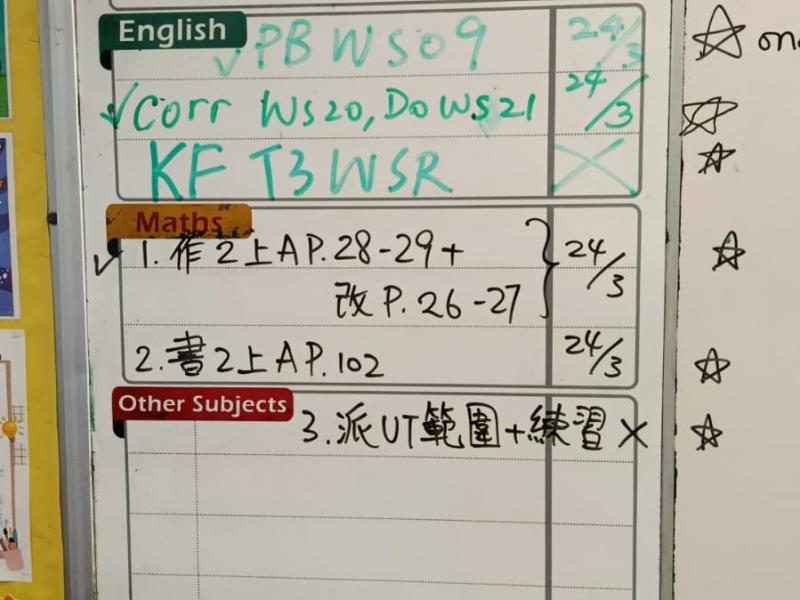 English
✓ PB WS09 24/3
✓ Corr WS20, Do WS21 24/3
KF T3 WSR ×
Maths
✓ 1. 作2上A P.28-29+
改 P.26-27 } 24/3
2. 書2上A P.102 24/3
Other Subjects
3. 派UT範圍+練習 ×